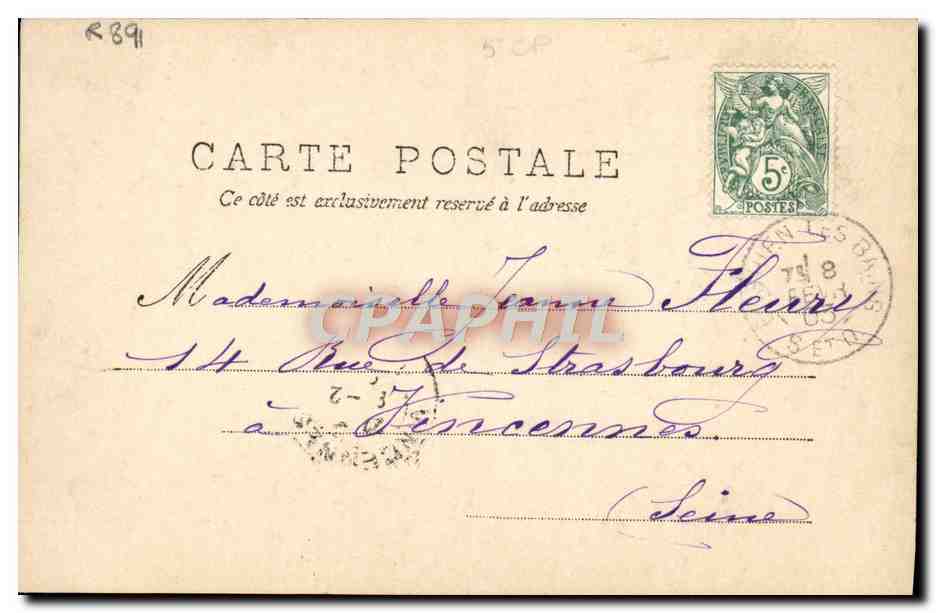 R 891
5 CP
RÉPUBLIQUE FRANÇAISE
5c
POSTES
CARTE POSTALE
Ce côté est exclusivement reservé à l'adresse
LES BAINS
8
S. ET O.
Mademoiselle Jeanne Fleury
14 Rue de Strasbourg
à Vincennes.
(Seine)
-2
VINCENNES
CPAPHIL